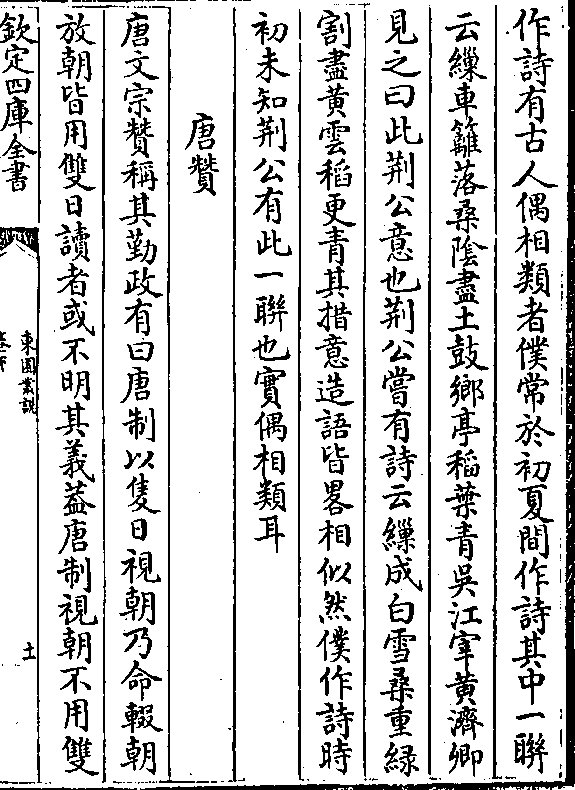 作詩有古人偶相類者僕常於初夏間作詩其中一聯
云繅車籬落桑陰盡土鼓鄉亭稻葉青吳江宰黃濟卿
見之曰此荆公意也荆公嘗有詩云繅成白雪桑重緑
割盡黃雲稻更青其措意造語皆畧相似然僕作詩時
初未知荆公有此一聯也實偶相類耳
唐贊
唐文宗贊稱其勤政有曰唐制以隻日視朝乃命輟朝
放朝皆用雙日讀者或不明其義葢唐制視朝不用雙
欽定四庫全書
東園叢說